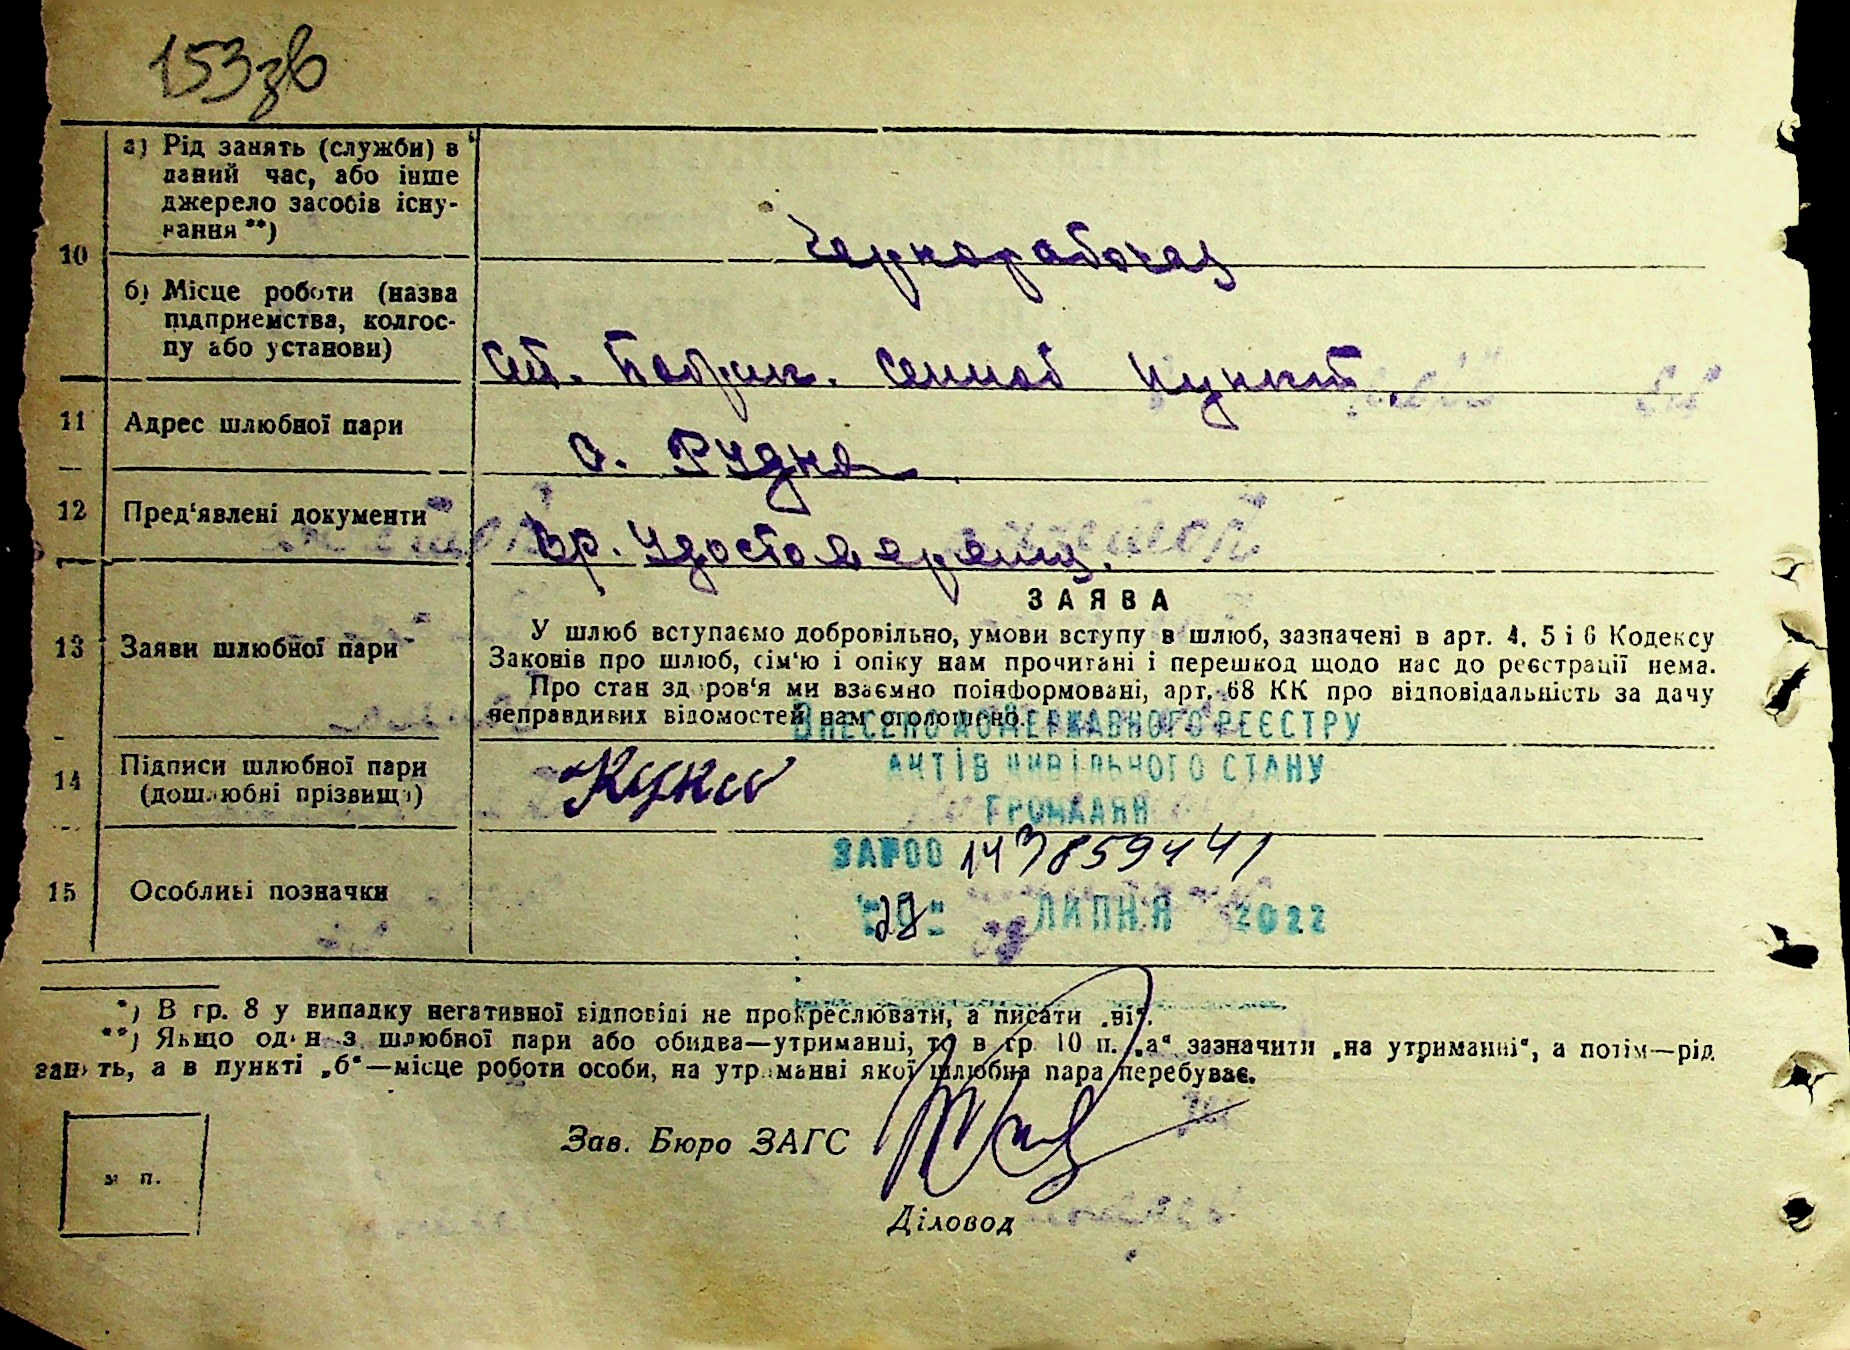 153зв
10
а) Рід занять (служби) в
даний час, або інше
джерело засобів існу-
вання **)
Чернорабочая
б) Місце роботи (назва
підприємства, колгос-
пу або установи)
ст. сенной пункт.
11 Адрес шлюбної пари
с. Рудня
12 Пред‘явлені документи
Вр. Удостоверения.
13 Заяви шлюбної пари
ЗАЯВА
У шлюб вступаємо добровільно, умови вступу в шлюб, зазначені в арт. 4, 5 і 6 Кодексу
Законів про шлюб, сім‘ю і опіку нам прочитані і перешкод щодо нас до реєстрації нема.
Про стан здоров‘я ми взаємно поінформовані, арт. 68 КК про відповідальність за дачу
неправдивих відомостей нам оголошено.
ВНЕСЕНО ДО ДЕРЖАВНОГО РЕЄСТРУ
АКТІВ ЦИВІЛЬНОГО СТАНУ
ГРОМАДЯН
14 Підписи шлюбної пари
(дошлюбні прізвища)
ЗА № 00 143859441
15 Особливі позначки
ЛИПНЯ 2022
*) В гр. 8 у випадку негативної відповіді не прокреслювати, а писати „ні“.
**) Якщо один з шлюбної пари або обидва—утриманці, то в гр. 10 п. „а“ зазначити „на утриманні“, а потім—рід
занять, а в пункті „б“—місце роботи особи, на утриманні якої шлюбна пара перебуває.
Зав. Бюро ЗАГС
м п.
Діловод